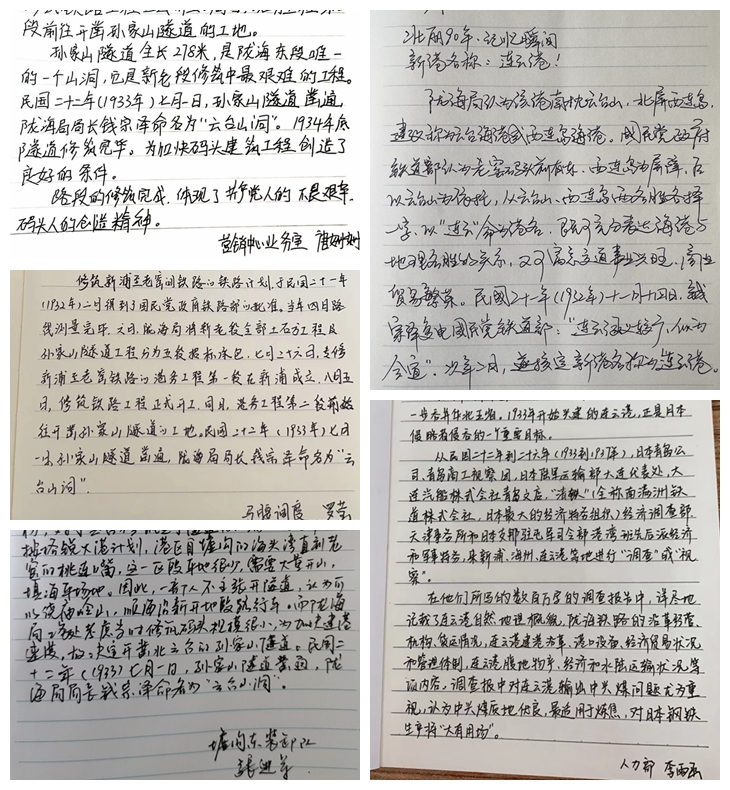 段前往开凿孙家山隧道的工地。
孙家山隧道全长278米，是陇海东段唯一
的一个山洞，也是新老段修筑中最艰难的工程。
民国二十二年(1933年)七月一日，孙家山隧道凿通，
陇海局局长钱宗泽命名为“云台山洞”。1934年底
隧道修筑完毕。为加快码头建筑工程创造了
良好的条件。
路段的修筑完成，体现了共产党人的不畏艰辛、
码头人的创造精神。
营销中心业务室
修筑新浦至老窑间铁路的铁路计划，于民国二十一年
(1932年)二月得到了国民党政府铁路部的批准。当年四月路
线测量完毕。六月，陇海局将新老段全部土石方工程及
孙家山隧道工程分为五段招标承包。七月二十六日，专修
新浦至老窑铁路的港务工程第一段在新浦成立，八月五
日，修筑铁路工程正式开工，同日，港务工程第二段前
往开凿孙家山隧道的工地。民国二十二年（1933年）七月
一日孙家山隧道凿通，陇海局局长钱宗泽命名为“云
台山洞”。
马腰调度 罗莹
大港计划，港区自墟沟的海头湾直到老
窑的桃连嘴，这一区段平地很少，需要大量开山，
填海平场地。因此，一部分人不主张开隧道，认为可
行车。而陇海
局工务处考虑当时修筑码头规模很小，为加快建港
速度，决定开凿北云台的孙家山隧道。民国二
十二年（1933）七月一日，孙家山隧道凿通，陇
海局局长钱宗泽命名为“云台山洞”。
墟沟东装卸队
北风90年·记忆瞬间
新港名称：连云港！
陇海局认为该港南枕云台山，北屏西连岛，
建议称为云台海港或西连岛海港。国民党政府
铁道部认为老窑之北有东、西连岛为屏障，后
以云台山为依托，从云台山、西连岛两名胜各择
一字，以“连云”命为港名，既可充分表达海港与
地理名胜的关系，又可寓意交通事业兴旺，商业
贸易繁荣。民国二十一年(1932年)十一月十四日，钱
宗泽复电国民党铁道部：“连云涵义较广，似为
合宜”。次年2月，遂核定新港名称为连云港。
一步吞并华北王端。1933年开始兴建的连云港，正是日本
侵略者侵吞的一个重要目标。
从民国二十二年到二十六年(1933到1937年)，日本青岛公
司、青岛商工视察团，日本陆军运输部大连代表处，大
连汽船株式会社青岛支店，“满铁”(全称南满洲铁
道株式会社，日本最大的经济特务组织)经济调查部
天津事务所和日本支那驻屯军司令部港湾班先后派经济
和军事特务，来新浦、海州、连云港等地进行“调查”或“视
察”。
在他们所写的数百万字的调查报告中，详尽地
记载了连云港自然地理概貌，陇海铁路的沿革经营、
机构、货运情况，连云港建港沿革、港口设备、经济贸易状况
和管理体制，连云港腹地物产、经济和水陆运输状况等
项内容。调查报中对连云港输出中兴煤问题尤为重
视，认为中兴煤质地优良，最适用于炼焦，对日本钢铁
生产将“大有用场”。
人力部 李雨函